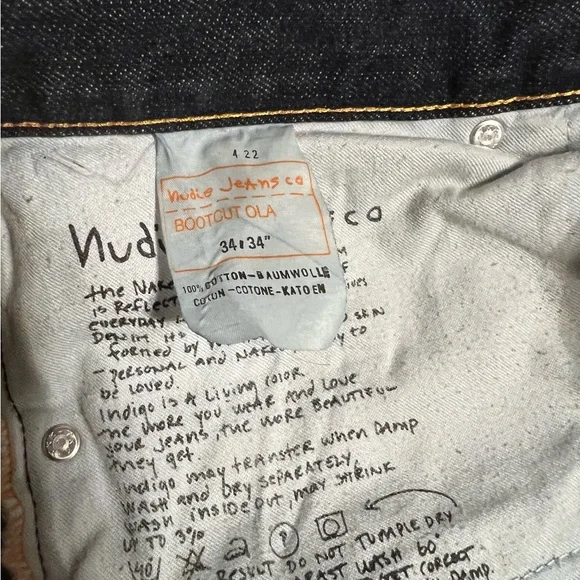 4 22
nudie Jeans co
BOOTCUT OLA
34 34"
100% COTTON-BAUMWOLLE
COTON-COTONE-KATOEN
Nudi s co
the NAKE
is Reflect ives
everyday SKIN
Denim its
formed by to
- personal and NAKE
be loved.
Indigo is a Living color
the more you wear and Love
your jeans, the more beautiful
they get.
Indigo may transfer when DAMP
WASH and DRY SEPARATELY,
WASH inside out, may SHRINK
UP TO 3%
40 P
RESULT DO NOT TUMPLE DRY
WASH 60°
CORRECT
DAMP.